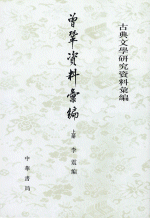 古典文學研究資料彙編
曾鞏資料彙編
上冊
李震編
中華書局